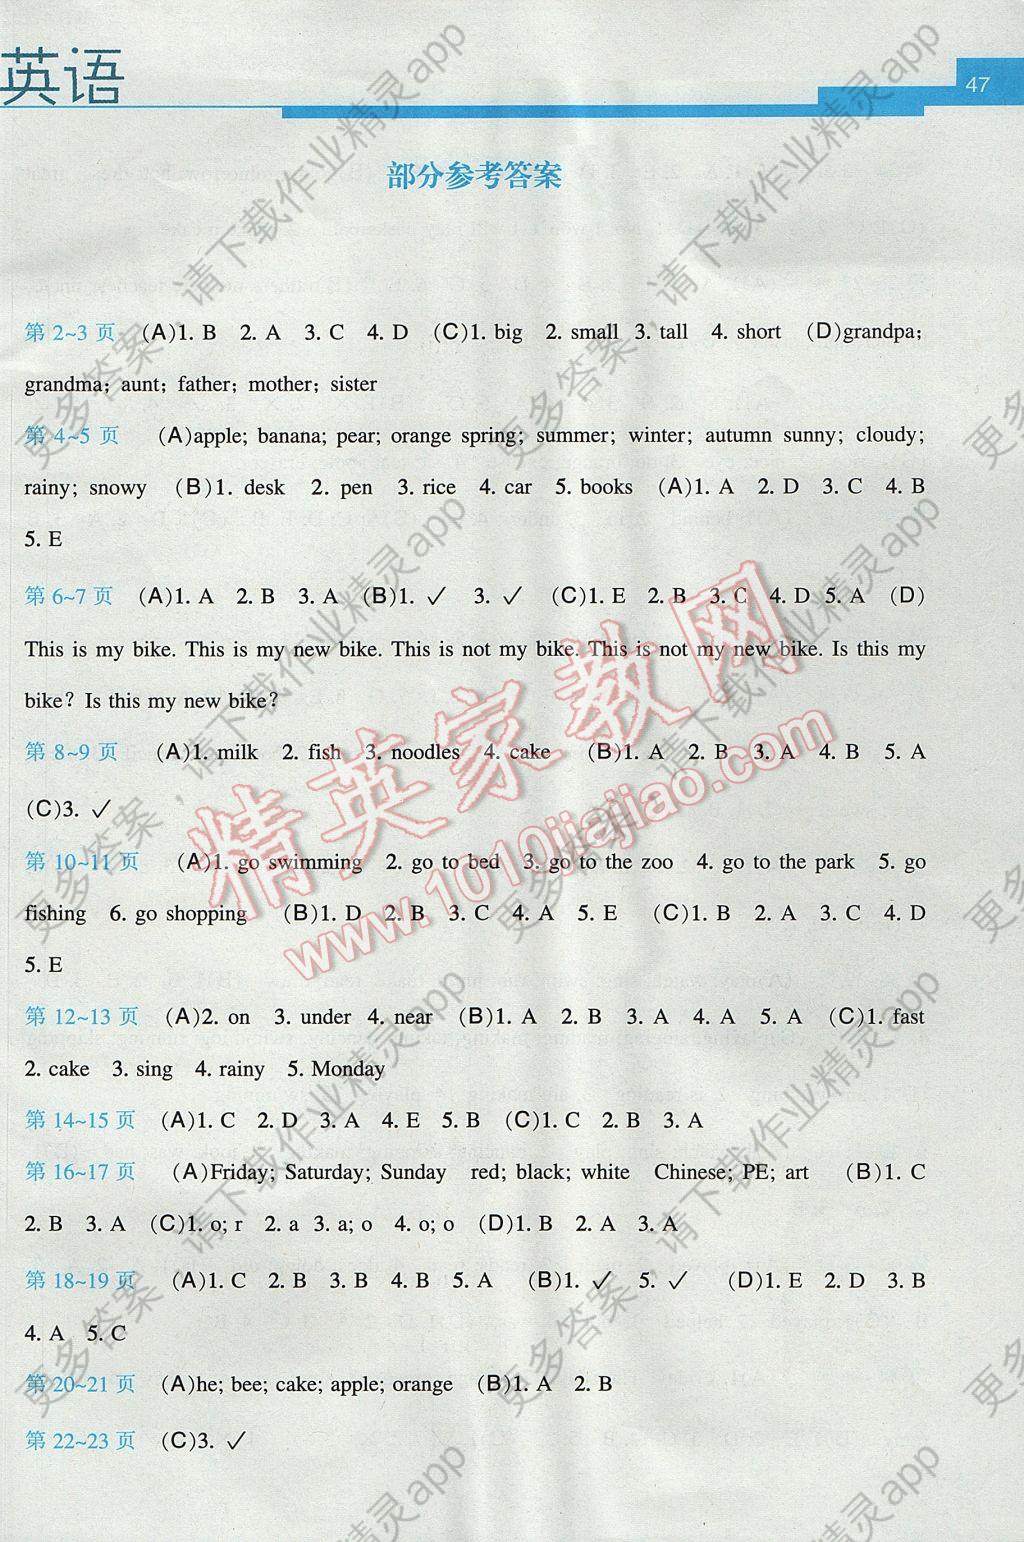 英语
47
部分参考答案
第 2~3 页 (A)1. B 2. A 3. C 4. D (C)1. big 2. small 3. tall 4. short (D)grandpa;
grandma; aunt; father; mother; sister
第 4~5 页 (A)apple; banana; pear; orange spring; summer; winter; autumn sunny; cloudy;
rainy; snowy (B)1. desk 2. pen 3. rice 4. car 5. books (A)1. A 2. D 3. C 4. B
5. E
第 6~7 页 (A)1. A 2. B 3. A (B)1. ✓ 3. ✓ (C)1. E 2. B 3. C 4. D 5. A (D)
This is my bike. This is my new bike. This is not my bike. This is not my new bike. Is this my
bike? Is this my new bike?
第 8~9 页 (A)1. milk 2. fish 3. noodles 4. cake (B)1. A 2. B 3. A 4. B 5. A
(C)3. ✓
第 10~11 页 (A)1. go swimming 2. go to bed 3. go to the zoo 4. go to the park 5. go
fishing 6. go shopping (B)1. D 2. B 3. C 4. A 5. E (C)1. B 2. A 3. C 4. D
5. E
第 12~13 页 (A)2. on 3. under 4. near (B)1. A 2. B 3. A 4. A 5. A (C)1. fast
2. cake 3. sing 4. rainy 5. Monday
第 14~15 页 (A)1. C 2. D 3. A 4. E 5. B (C)1. C 2. B 3. A
第 16~17 页 (A)Friday; Saturday; Sunday red; black; white Chinese; PE; art (B)1. C
2. B 3. A (C)1. o; r 2. a 3. a; o 4. o; o (D)1. B 2. A 3. A
第 18~19 页 (A)1. C 2. B 3. B 4. B 5. A (B)1. ✓ 5. ✓ (D)1. E 2. D 3. B
4. A 5. C
第 20~21 页 (A)he; bee; cake; apple; orange (B)1. A 2. B
第 22~23 页 (C)3. ✓
精英家教网
www.1010jiajiao.com
更多答案,请下载作业精灵app